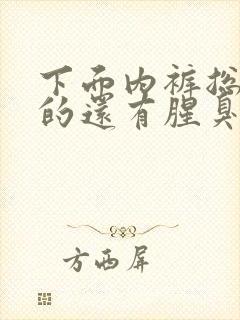 下面内裤总
的還有腥臭
方西屏